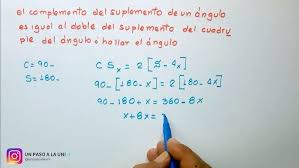 El complemento del suplemento de un ángulo
es igual al doble del suplemento del cuádru
ple del ángulo ó hallar el ángulo
C = 90-
S = 180-
C S x = 2 [S - 4x]
90 - [180 - x] = 2 [180 - 4x]
90 - 180 + x = 360 - 8x
x + 8x =
UN PASO A LA UNI